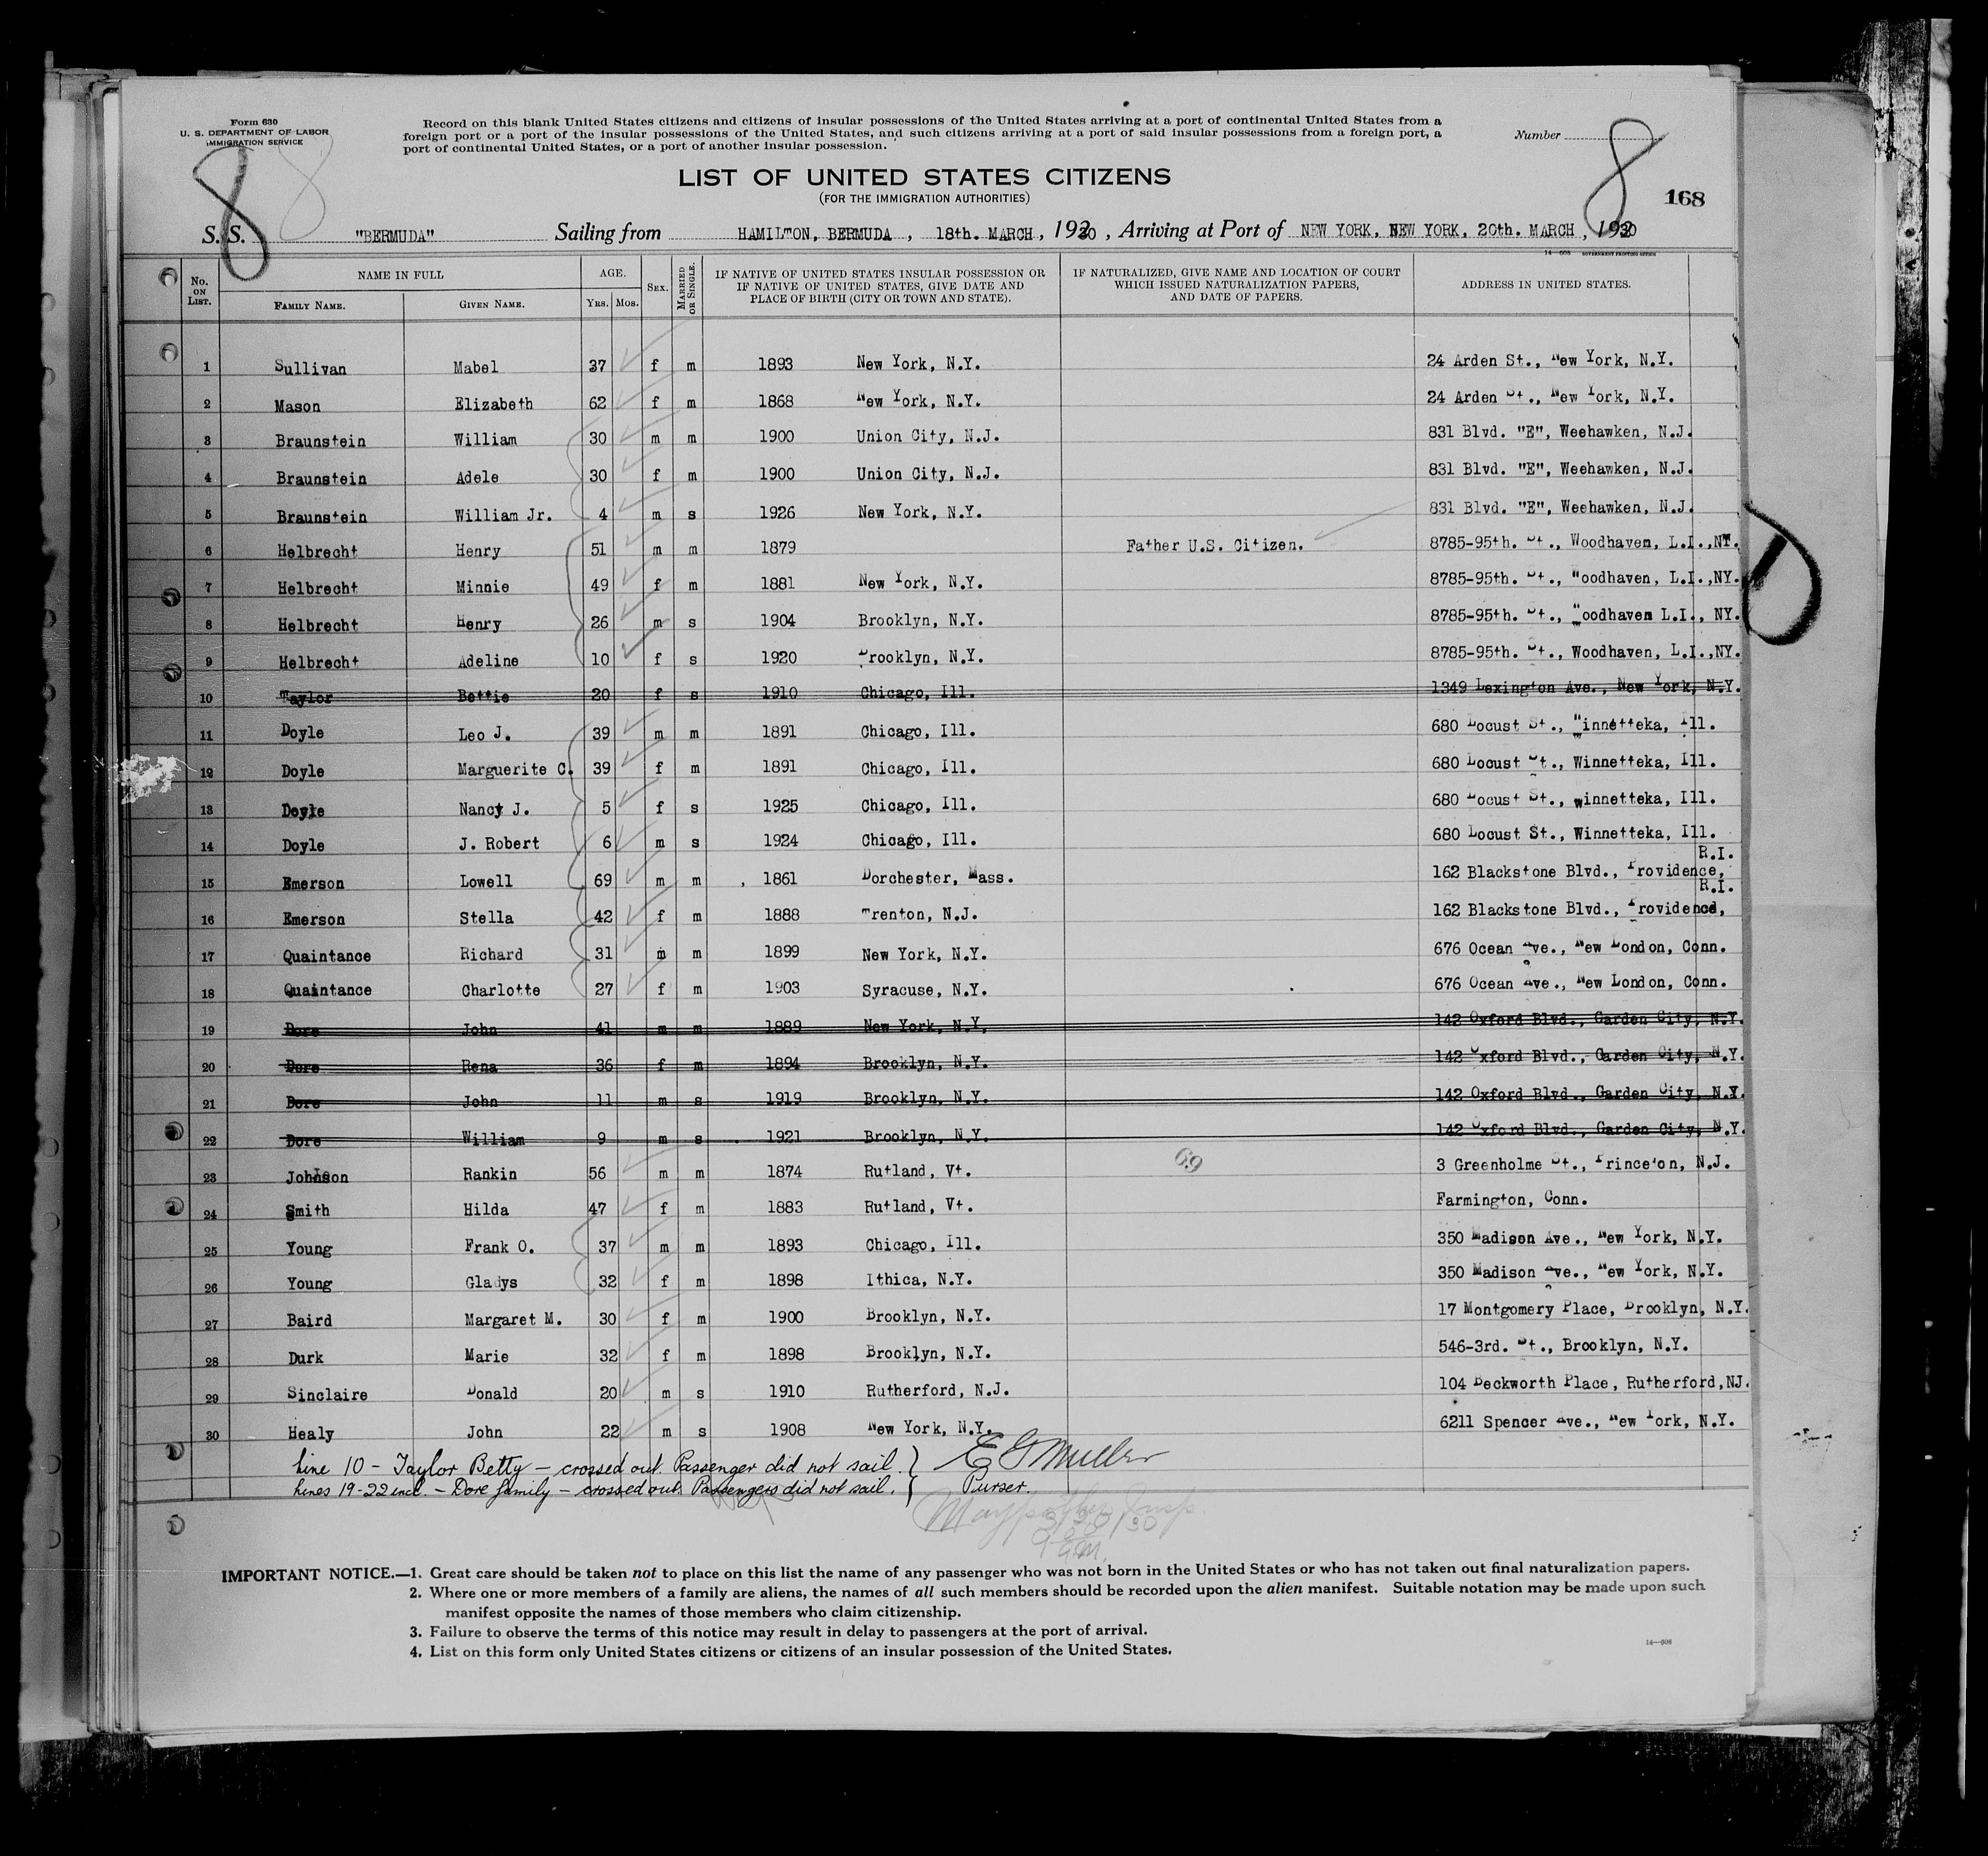 Form 630
U. S. DEPARTMENT OF LABOR
IMMIGRATION SERVICE
Record on this blank United States citizens and citizens of insular possessions of the United States arriving at a port of continental United States from a
foreign port or a port of the insular possessions of the United States, and such citizens arriving at a port of said insular possessions from a foreign port, a
port of continental United States, or a port of another insular possession.
Number
8 8 8
LIST OF UNITED STATES CITIZENS
(FOR THE IMMIGRATION AUTHORITIES)
168
S. S. "BERMUDA" Sailing from HAMILTON, BERMUDA, 18th. MARCH, 1930, Arriving at Port of NEW YORK, NEW YORK, 20th. MARCH, 1930
14—608 GOVERNMENT PRINTING OFFICE
No. ON LIST. NAME IN FULL AGE. SEX. MARRIED OR SINGLE. IF NATIVE OF UNITED STATES INSULAR POSSESSION OR IF NATIVE OF UNITED STATES, GIVE DATE AND PLACE OF BIRTH (CITY OR TOWN AND STATE). IF NATURALIZED, GIVE NAME AND LOCATION OF COURT WHICH ISSUED NATURALIZATION PAPERS, AND DATE OF PAPERS. ADDRESS IN UNITED STATES.
FAMILY NAME. GIVEN NAME. YRS. MOS.
1 Sullivan Mabel 37 f m 1893 New York, N.Y. 24 Arden St., New York, N.Y.
2 Mason Elizabeth 62 f m 1868 New York, N.Y. 24 Arden St., New York, N.Y.
3 Braunstein William 30 m m 1900 Union City, N.J. 831 Blvd. "E", Weehawken, N.J.
4 Braunstein Adele 30 f m 1900 Union City, N.J. 831 Blvd. "E", Weehawken, N.J.
5 Braunstein William Jr. 4 m s 1926 New York, N.Y. 831 Blvd. "E", Weehawken, N.J.
6 Helbrecht Henry 51 m m 1879 Father U.S. Citizen. 8785-95th. St., Woodhaven, L.I.,NY.
7 Helbrecht Minnie 49 f m 1881 New York, N.Y. 8785-95th. St., Woodhaven, L.I.,NY.
8 Helbrecht Henry 26 m s 1904 Brooklyn, N.Y. 8785-95th. St., Woodhaven L.I., NY.
9 Helbrecht Adeline 10 f s 1920 Brooklyn, N.Y. 8785-95th. St., Woodhaven, L.I.,NY.
10 Taylor Bettie 20 f s 1910 Chicago, Ill. 1349 Lexington Ave., New York, N.Y.
11 Doyle Leo J. 39 m m 1891 Chicago, Ill. 680 Locust St., Winnetteka, Ill.
12 Doyle Marguerite C. 39 f m 1891 Chicago, Ill. 680 Locust St., Winnetteka, Ill.
13 Doyle Nancy J. 5 f s 1925 Chicago, Ill. 680 Locust St., winnetteka, Ill.
14 Doyle J. Robert 6 m s 1924 Chicago, Ill. 680 Locust St., Winnetteka, Ill.
15 Emerson Lowell 69 m m 1861 Dorchester, Mass. 162 Blackstone Blvd., Providence, R.I.
16 Emerson Stella 42 f m 1888 Trenton, N.J. 162 Blackstone Blvd., Providence, R.I.
17 Quaintance Richard 31 m m 1899 New York, N.Y. 676 Ocean Ave., New London, Conn.
18 Quaintance Charlotte 27 f m 1903 Syracuse, N.Y. 676 Ocean Ave., New London, Conn.
19 Dore John 41 m m 1889 New York, N.Y. 142 Oxford Blvd., Garden City, N.Y.
20 Dore Rena 36 f m 1894 Brooklyn, N.Y. 142 Oxford Blvd., Garden City, N.Y.
21 Dore John 11 m s 1919 Brooklyn, N.Y. 142 Oxford Blvd., Garden City, N.Y.
22 Dore William 9 m s 1921 Brooklyn, N.Y. 142 Oxford Blvd., Garden City, N.Y.
23 Johnson Rankin 56 m m 1874 Rutland, Vt. 69 3 Greenholme St., Princeton, N.J.
24 Smith Hilda 47 f m 1883 Rutland, Vt. Farmington, Conn.
25 Young Frank O. 37 m m 1893 Chicago, Ill. 350 Madison Ave., New York, N.Y.
26 Young Gladys 32 f m 1898 Ithica, N.Y. 350 Madison Ave., New York, N.Y.
27 Baird Margaret M. 30 f m 1900 Brooklyn, N.Y. 17 Montgomery Place, Brooklyn, N.Y.
28 Durk Marie 32 f m 1898 Brooklyn, N.Y. 546-3rd. St., Brooklyn, N.Y.
29 Sinclaire Donald 20 m s 1910 Rutherford, N.J. 104 Beckworth Place, Rutherford,NJ.
30 Healy John 22 m s 1908 New York, N.Y. 6211 Spencer Ave., New York, N.Y.
Line 10 - Taylor Betty - crossed out. Passenger did not sail. } E G Muller
Lines 19-22 incl. - Dore family - crossed out. Passengers did not sail. } Purser.
Insp.
3/20/30
9 am.
IMPORTANT NOTICE.—1. Great care should be taken not to place on this list the name of any passenger who was not born in the United States or who has not taken out final naturalization papers.
2. Where one or more members of a family are aliens, the names of all such members should be recorded upon the alien manifest. Suitable notation may be made upon such
manifest opposite the names of those members who claim citizenship.
3. Failure to observe the terms of this notice may result in delay to passengers at the port of arrival.
4. List on this form only United States citizens or citizens of an insular possession of the United States.
14—608